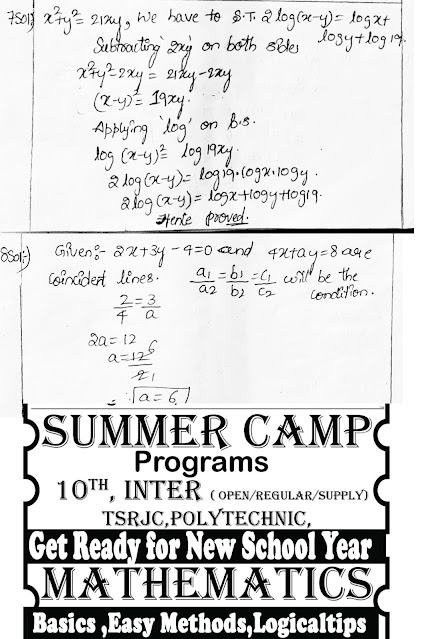 7sol) x²+y² = 21xy, we have to S.T. 2 log(x-y) = logx+
logy+log19.
Subtracting '2xy' on both sides
x²+y²-2xy = 21xy-2xy
(x-y)² = 19xy.
Applying 'log' on b.s.
log (x-y)² log 19xy.
2 log(x-y) = log19.logx.logy.
2 log(x-y) = logx+logy+log19.
Hence proved.
8sol:-) Given:- 2x+3y-4=0 and 4x+ay=8 are
coincident lines. a1/a2 = b1/b2 = c1/c2 will be the
condition.
2/4 = 3/a
2a = 12
a = 12/2 6 1
= a = 6
SUMMER CAMP
Programs
10TH, INTER (OPEN/REGULAR/SUPPLY)
TSRJC,POLYTECHNIC,
Get Ready for New School Year
MATHEMATICS
Basics ,Easy Methods,Logicaltips